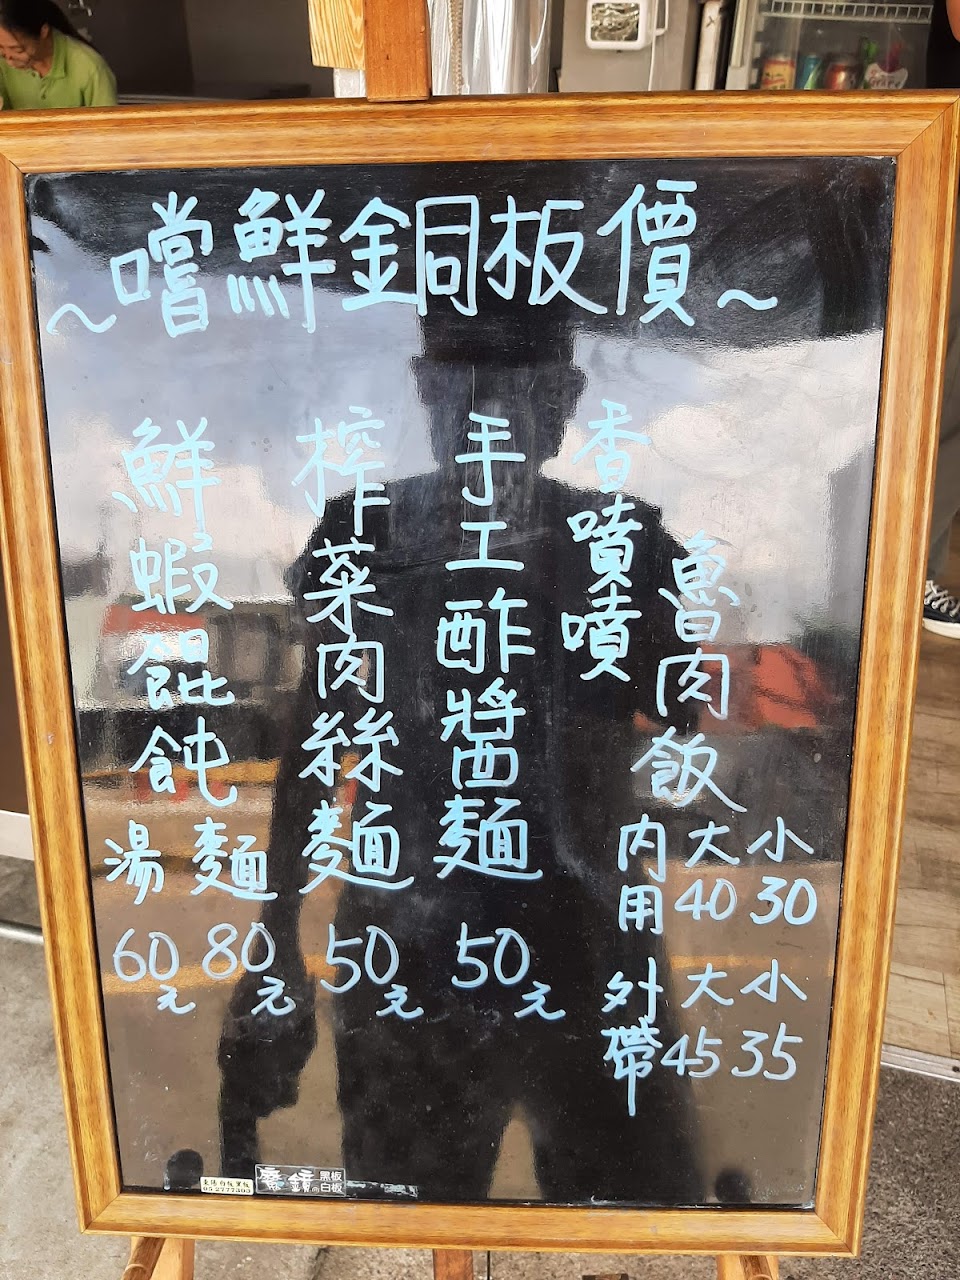 ~嚐鮮銅板價~
香噴噴
魯肉飯
內用 大40 小30
外帶 大45 小35
手工酢醬麵
50元
榨菜肉絲麵
50元
鮮蝦餛飩
麵 湯
80元 60元
05-2777303
磨鏡の黑板白板